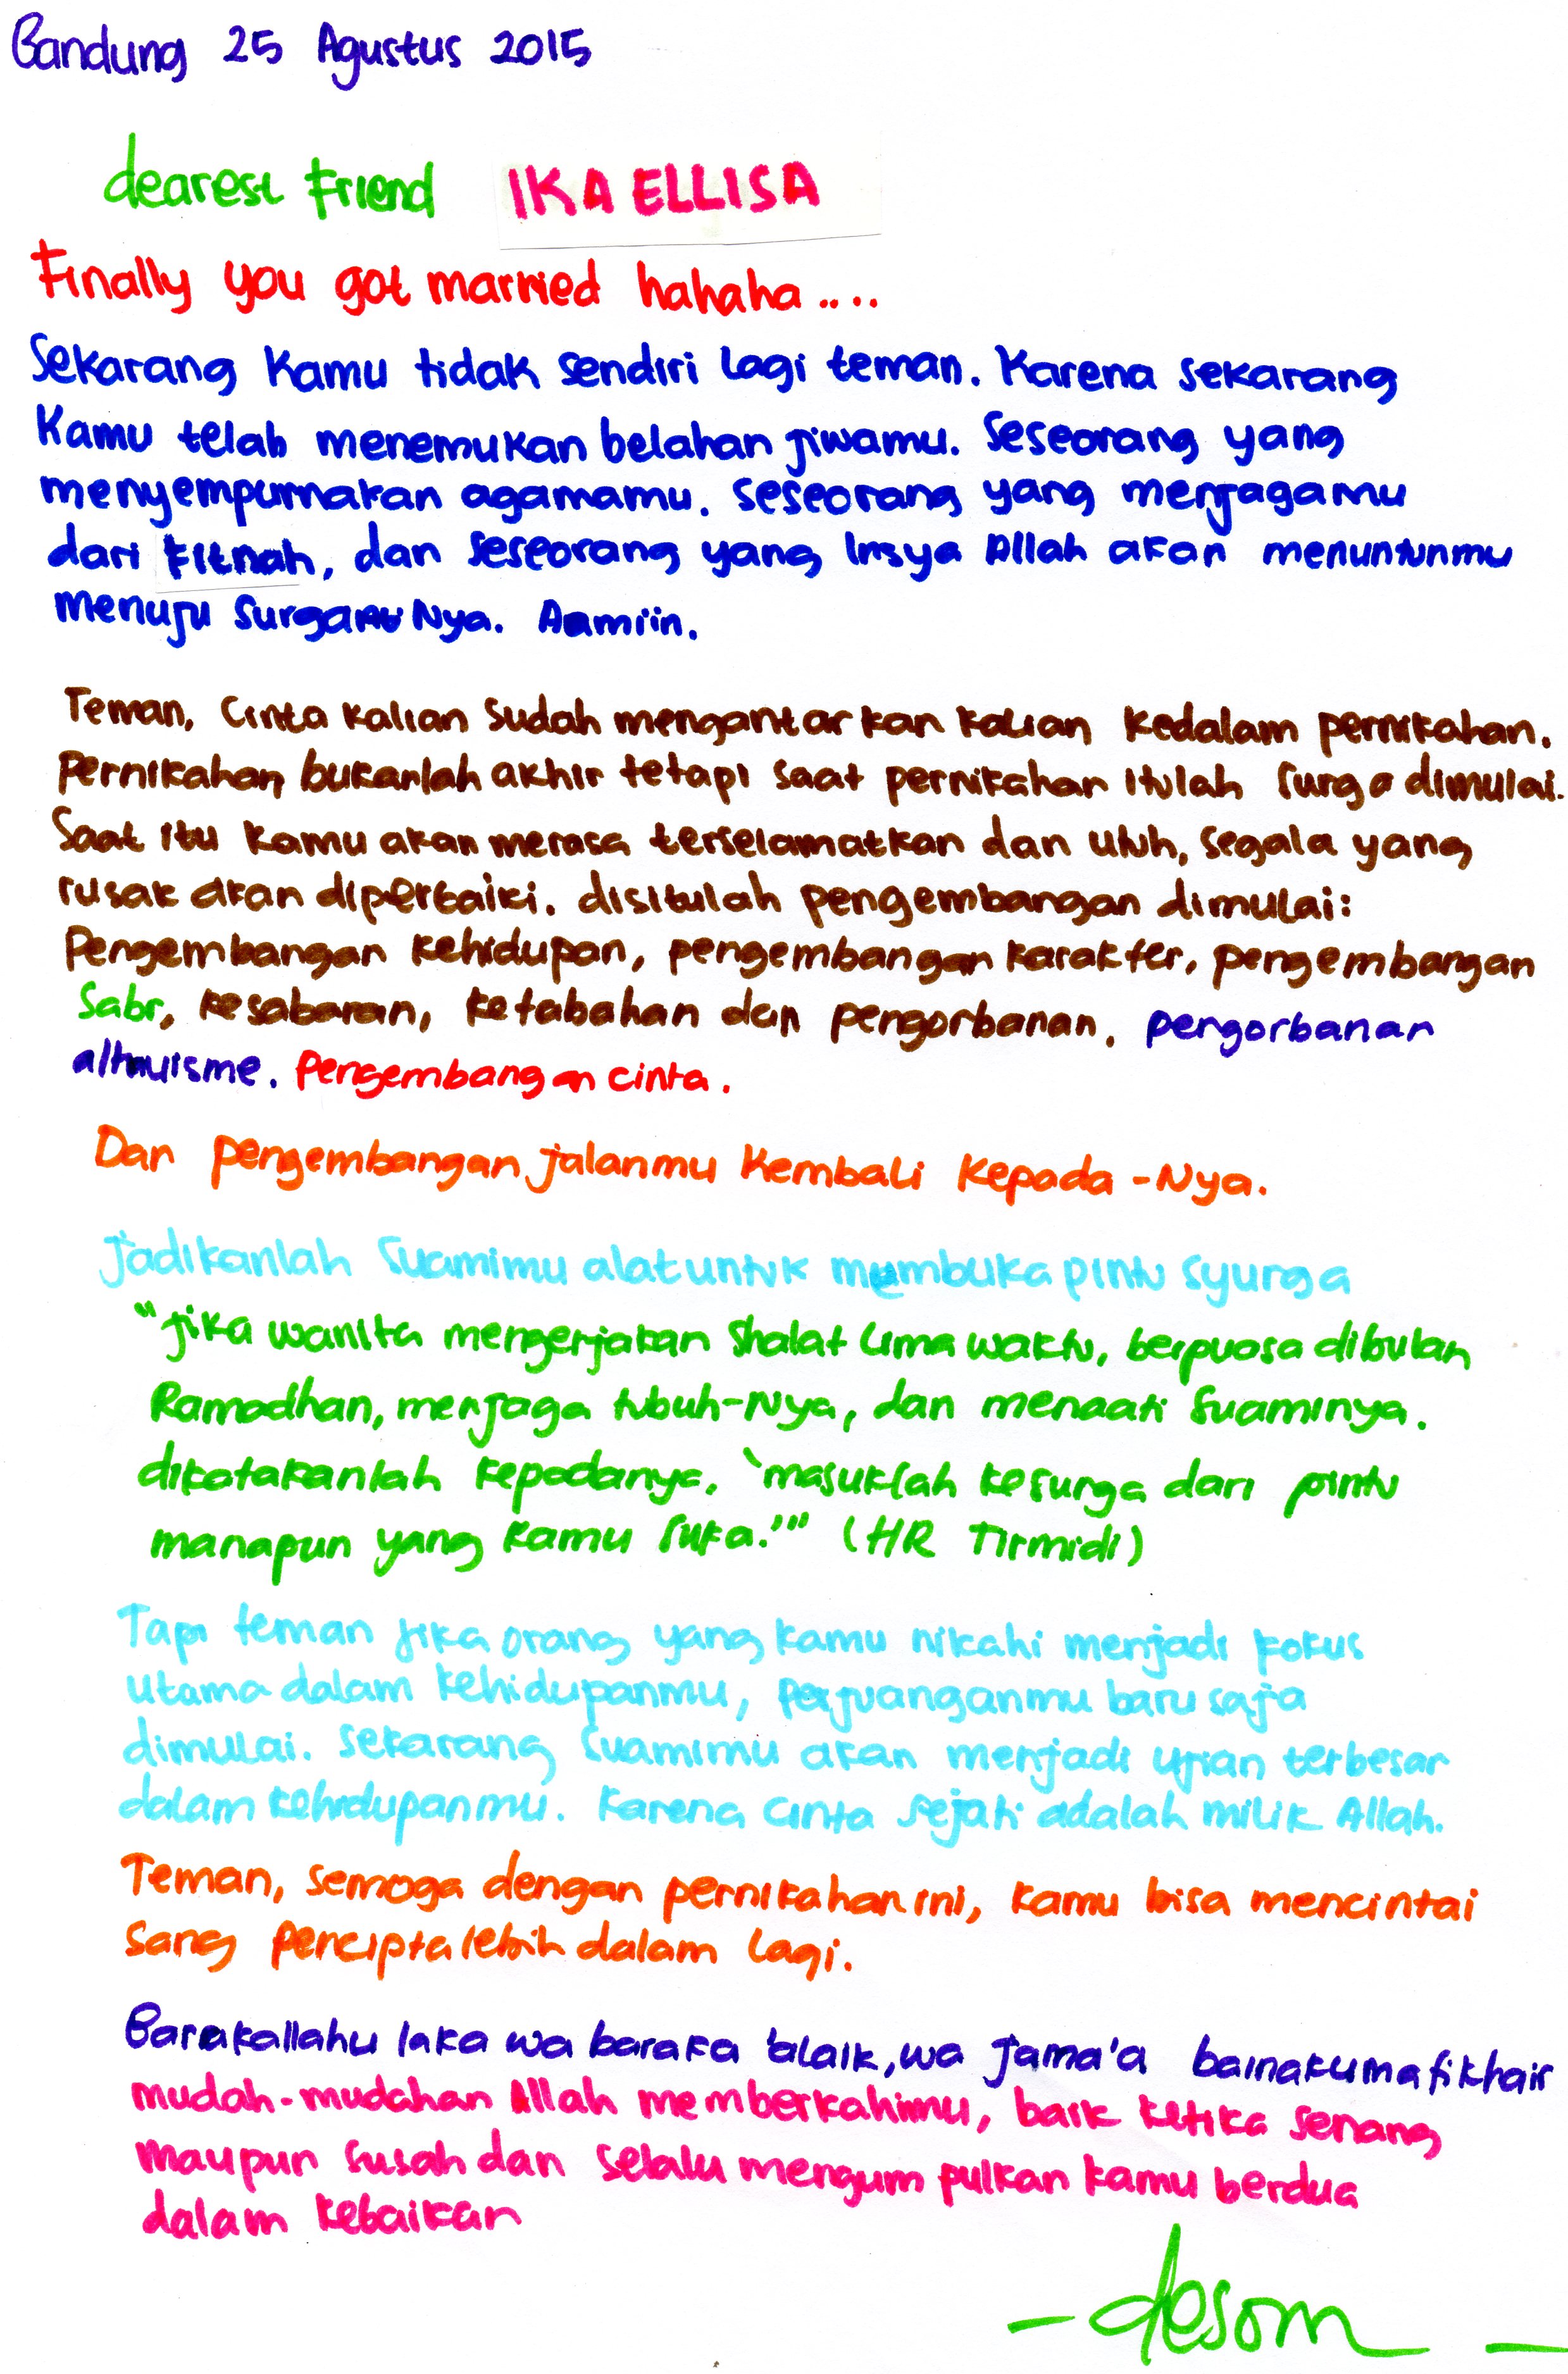 Bandung 25 Agustus 2015
dearest friend IKA ELLISA
Finally you got married hahaha....
Sekarang kamu tidak sendiri lagi teman. Karena sekarang
kamu telah menemukan belahan jiwamu. Seseorang yang
menyempurnakan agamamu. seseorang yang menjagamu
dari fitnah, dan seseorang yang Insya Allah akan menuntunmu
menuju surga Nya. Aamiin.
Teman, cinta kalian sudah mengantarkan kalian kedalam pernikahan.
Pernikahan bukanlah akhir tetapi saat pernikahan itulah surga dimulai.
Saat itu kamu akan merasa terselamatkan dan utuh, segala yang
rusak akan diperbaiki. disitulah pengembangan dimulai:
Pengembangan kehidupan, pengembangan karakter, pengembangan
sabr, kesabaran, ketabahan dan pengorbanan. pengorbanan
altruisme. Pengembangan cinta.
Dan pengembangan jalanmu kembali kepada -Nya.
Jadikanlah suamimu alat untuk membuka pintu syurga
"jika wanita mengerjakan shalat lima waktu, berpuasa dibulan
Ramadhan, menjaga tubuh-Nya, dan menaati suaminya.
dikatakanlah kepadanya, 'masuklah kesurga dari pintu
manapun yang kamu suka.'" (HR Tirmidi)
Tapi teman jika orang yang kamu nikahi menjadi fokus
utama dalam kehidupanmu, perjuanganmu baru saja
dimulai. Sekarang suamimu akan menjadi ujian terbesar
dalam kehidupanmu. Karena cinta sejati adalah milik Allah.
Teman, semoga dengan pernikahan ini, kamu bisa mencintai
Sang pencipta lebih dalam lagi.
Barakallahu laka wa baraka 'alaik, wa jama'a bainakuma fikhair
mudah-mudahan Allah memberkahimu, baik ketika senang
maupun susah dan selalu mengumpulkan kamu berdua
dalam kebaikan
- desom -